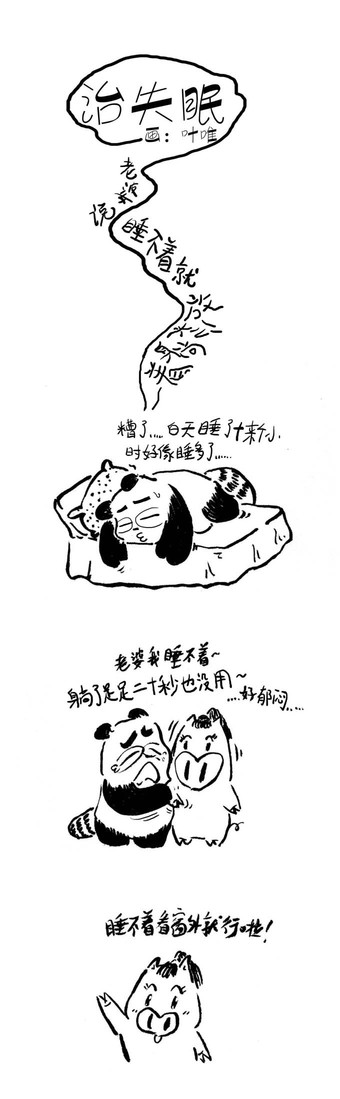 治失眠
画：叶唯
老猪说
睡不着就
糟了.....白天睡了十来个小
时好像睡多了......
老婆我睡不着~
躺了足足二十秒也没用~
....好郁闷....
睡不着看窗外就行啦!